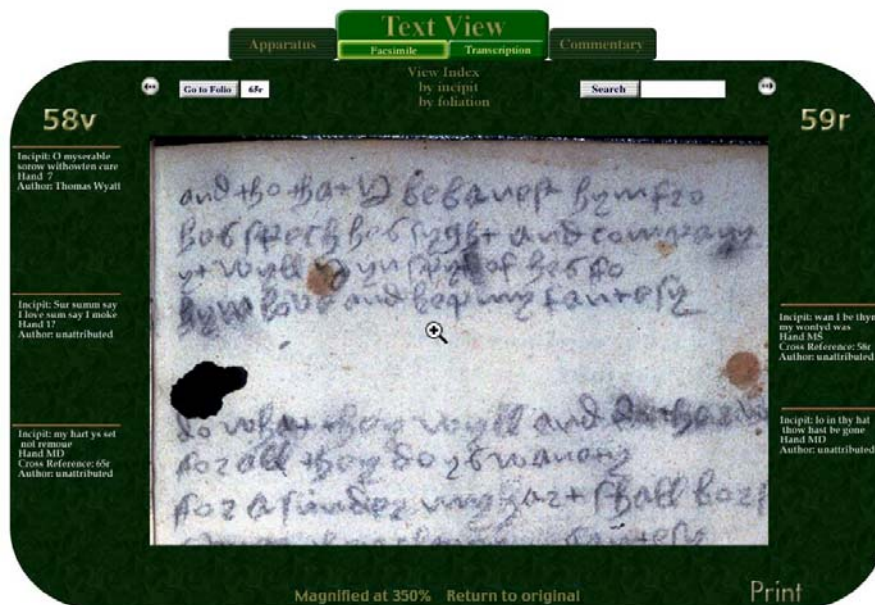 Text View
Apparatus
Facsimile
Transcription
Commentary
View Index
by incipit
by foliation
Go to Folio
65r
Search
58v
59r
Incipit: O myserable
sorow withowten cure
Hand 7
Author: Thomas Wyatt
Incipit: Sur summ say
I love sum say I moke
Hand 1?
Author: unattributed
Incipit: my hart ys set
not remoue
Hand MD
Cross Reference: 65r
Author: unattributed
and tho that I be banest hym fro
hes spech hes syght and company
yt wyll I yn spyt of hes fo
hym love and kep my fantesy
do what they wyll and do
for all they do ys wanety
for asunder my hart shall
fantesy
Incipit: wan I be thyn
my wontyd was
Hand MS
Cross Reference: 58r
Author: unattributed
Incipit: lo in thy hat
thow hast be gone
Hand MD
Author: unattributed
Magnified at 350%
Return to original
Print